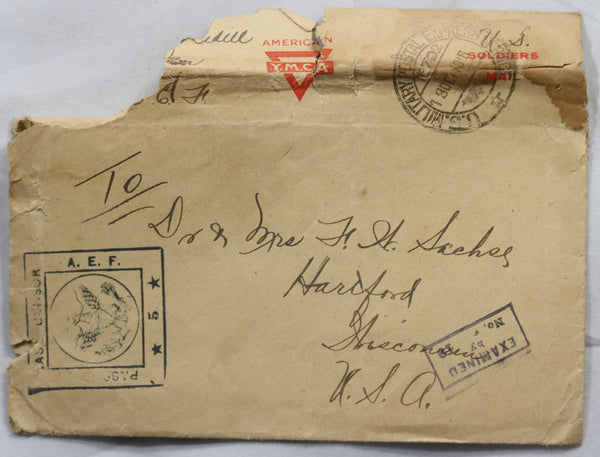 AMERICAN
Y.M.C.A.
U.S.
SOLDIERS
MAIL
U.S. MILITARY POSTAL EXPRESS
702
To
Dr & Mrs F. W. Sachse
Hartford
Wisconsin
U.S.A.
A. E. F.
★ 5 ★
EXAMINED
by
No.